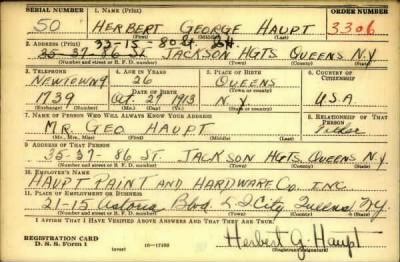 SERIAL NUMBER 1. NAME (Print) ORDER NUMBER
50 HERBERT GEORGE HAUPT 3306
(First) (Middle) (Last)
2. ADDRESS (Print) 33-15-80 St.
35-37-86 ST. JACKSON HGTS QUEENS N.Y.
(Number and street or R. F. D. number) (Town) (County) (State)
3. TELEPHONE 4. AGE IN YEARS 5. PLACE OF BIRTH 6. COUNTRY OF CITIZENSHIP
NEWTOWN 9 26 QUEENS
1739 DATE OF BIRTH Oct. 29 1913 N.Y. U.S.A
(Exchange) (Number) (Mo.) (Day) (Yr.) (State or country)
7. NAME OF PERSON WHO WILL ALWAYS KNOW YOUR ADDRESS 8. RELATIONSHIP OF THAT PERSON
MR. GEO. HAUPT Father
(Mr., Mrs., Miss) (First) (Middle) (Last)
9. ADDRESS OF THAT PERSON
35-37- 86 ST. JACKSON HGTS. QUEENS N.Y.
(Number and street or R. F. D. number) (Town) (County) (State)
10. EMPLOYER'S NAME
HAUPT PAINT AND HARDWARE Co. INC.
11. PLACE OF EMPLOYMENT OR BUSINESS
21-15 Astoria Blvd. L I City Queens NY
(Number and street or R. F. D. number) (Town) (County) (State)
I AFFIRM THAT I HAVE VERIFIED ABOVE ANSWERS AND THAT THEY ARE TRUE.
REGISTRATION CARD
D. S. S. Form 1 (over) 16-17105
Herbert G. Haupt
(Registrant's signature)